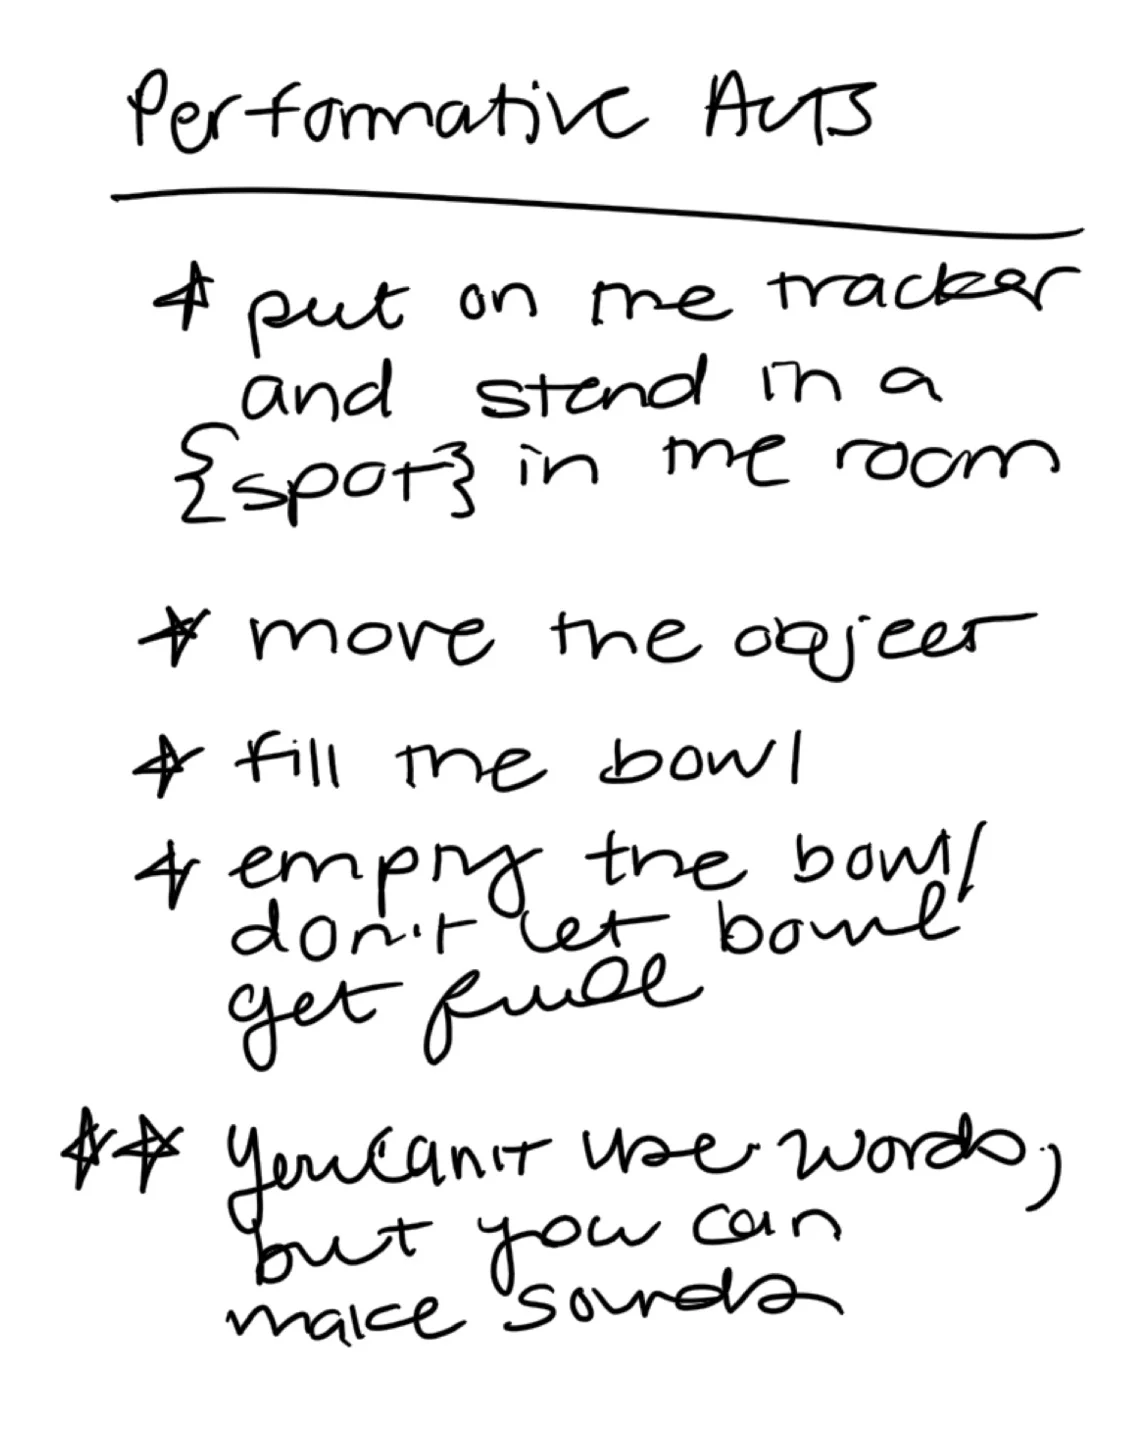 Performative Acts
* put on the tracker
and stand in a
{spot} in the room
* move the object
* fill the bowl
* empty the bowl/
don't let bowl
get full
** You can't use words;
but you can
make sounds